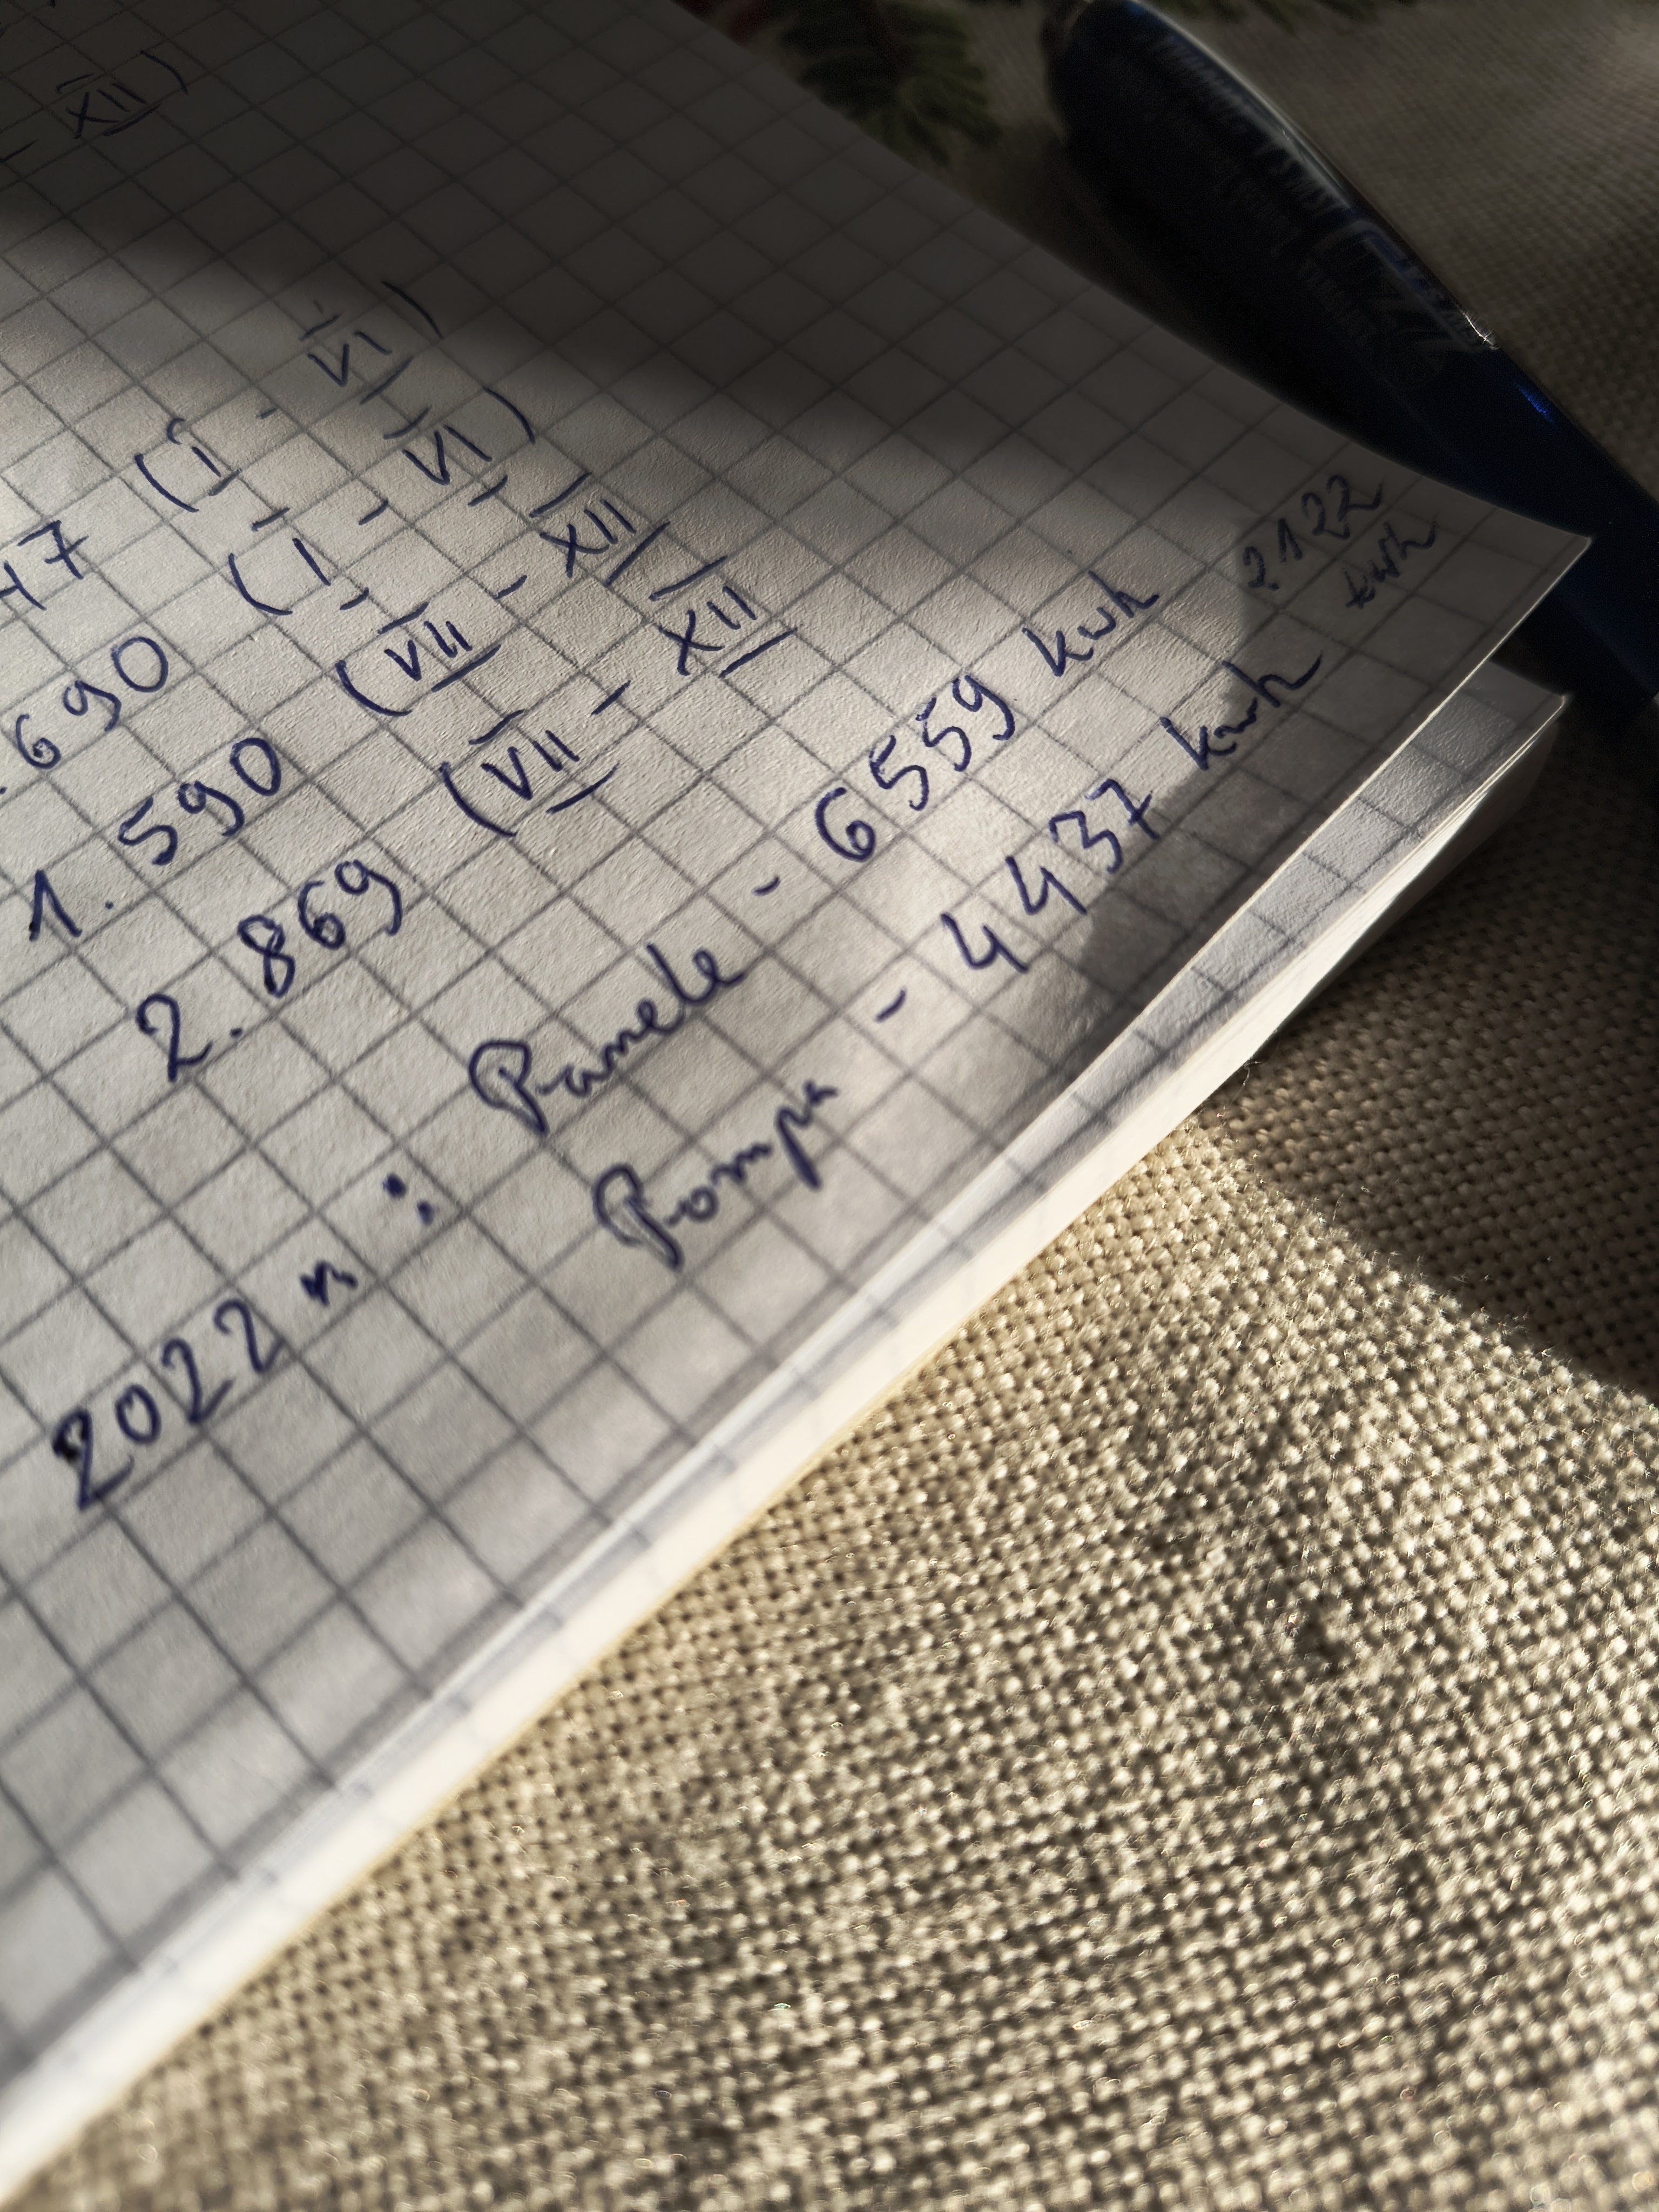 - XII)
47 (I - VI)
.690 (I - VI)
1.590 (VII - XII
2.869 (VII - XII
2022 r: Panele - 6559 kwh 2.122 kwh
Pompa - 4437 kwh